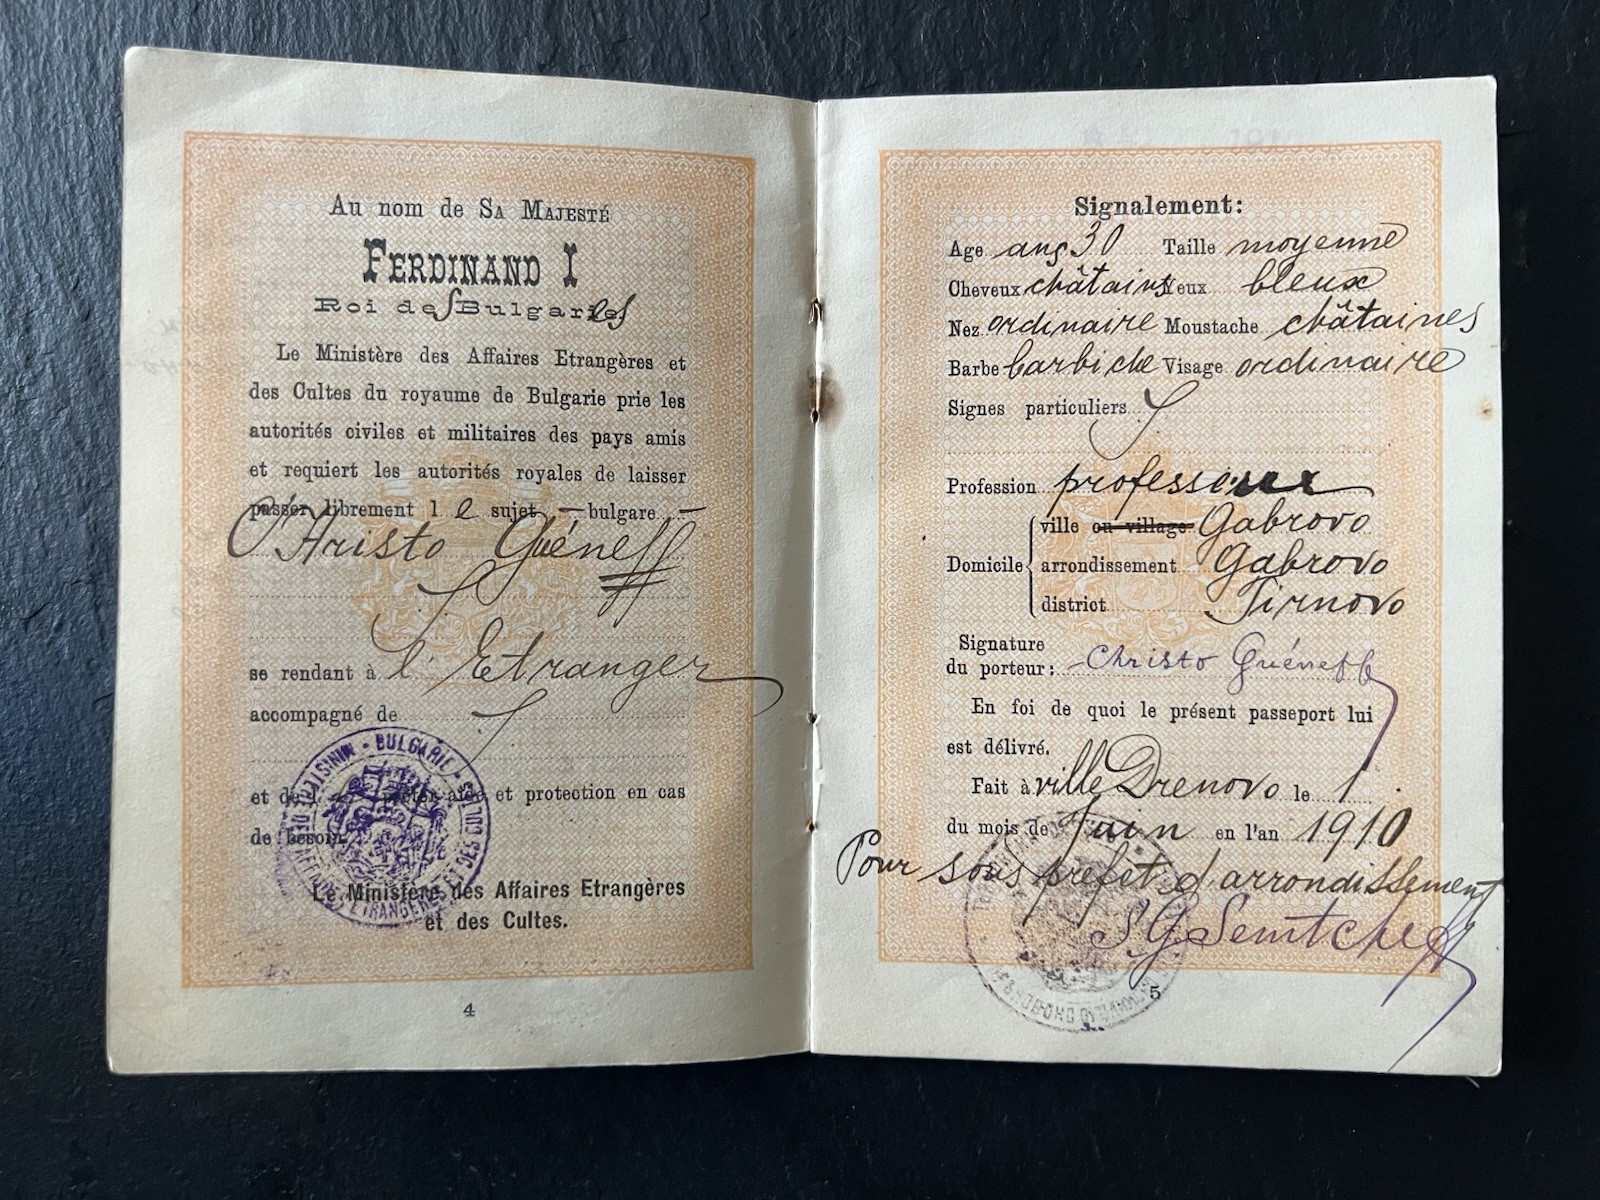 Au nom de SA MAJESTÉ
FERDINAND I
Roi des Bulgares
Le Ministère des Affaires Etrangères et
des Cultes du royaume de Bulgarie prie les
autorités civiles et militaires des pays amis
et requiert les autorités royales de laisser
passer librement l e sujet bulgare
Christo Guéneff
se rendant à l'Etranger
accompagné de
et de prêter aide et protection en cas
de besoin.
Le Ministère des Affaires Etrangères
et des Cultes.
MINISTÈRE DES AFFAIRES ETRANGÈRES ET DES CULTES - BULGARIE -
4
Signalement:
Age ans 30 Taille moyenne
Cheveux châtains Yeux bleux
Nez ordinaire Moustache châtaines
Barbe barbiche Visage ordinaire
Signes particuliers
Profession professeur
ville ou village Gabrovo
Domicile arrondissement Gabrovo
district Tirnovo
Signature
du porteur: Christo Guéneff
En foi de quoi le présent passeport lui
est délivré.
Fait à ville Drenovo le 1
du mois de Juin en l'an 1910
Pour sous préfet d'arrondissement
5